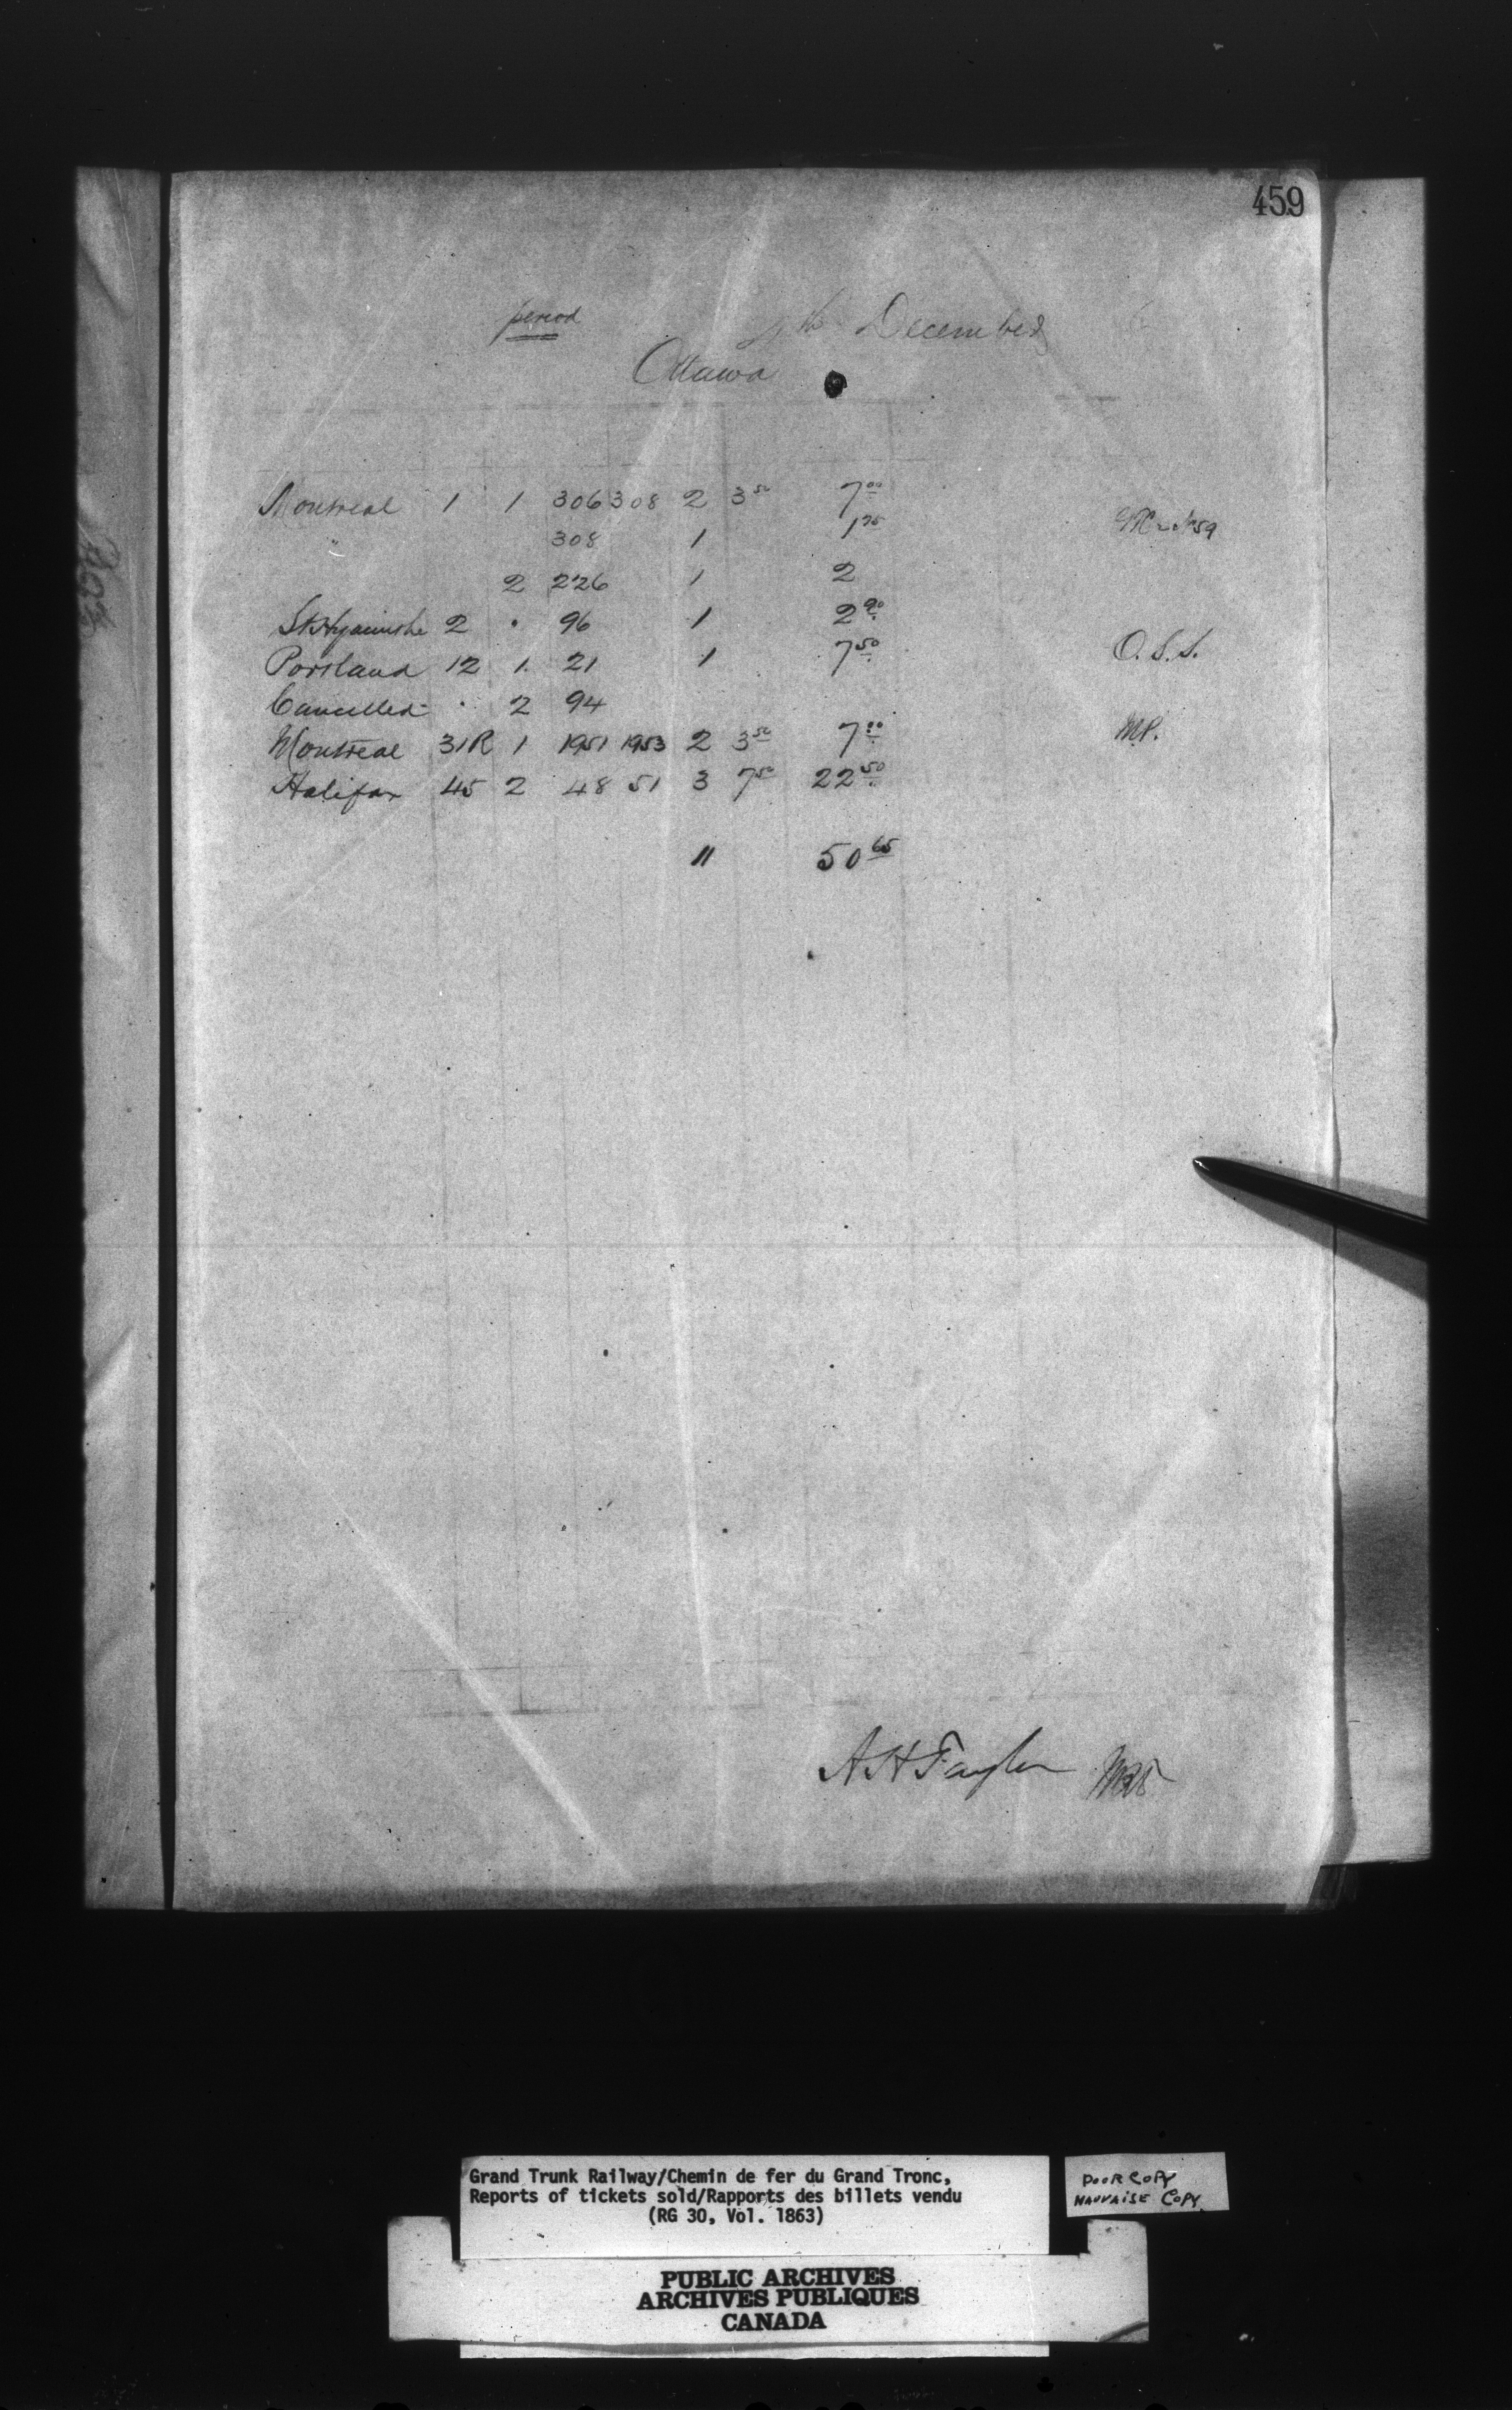 459
period th December
Ottawa
Montreal 1 1 306 308 2 3 50 7 00
" 308 1 1 75
2 226 1 2
St Hyacinthe 2 . 96 1 2 90
Portland 12 1. 21 1 7 50 O.S.S.
Cancelled . 2 94
Montreal 31R 1 1951 1953 2 3 50 7 00 MP.
Halifax 45 2 48 51 3 7 50 22 50
11 50 65
A H Taylor
Grand Trunk Railway/Chemin de fer du Grand Tronc,
Reports of tickets sold/Rapports des billets vendu
(RG 30, Vol. 1863)
POOR COPY
MAUVAISE COPY
PUBLIC ARCHIVES
ARCHIVES PUBLIQUES
CANADA